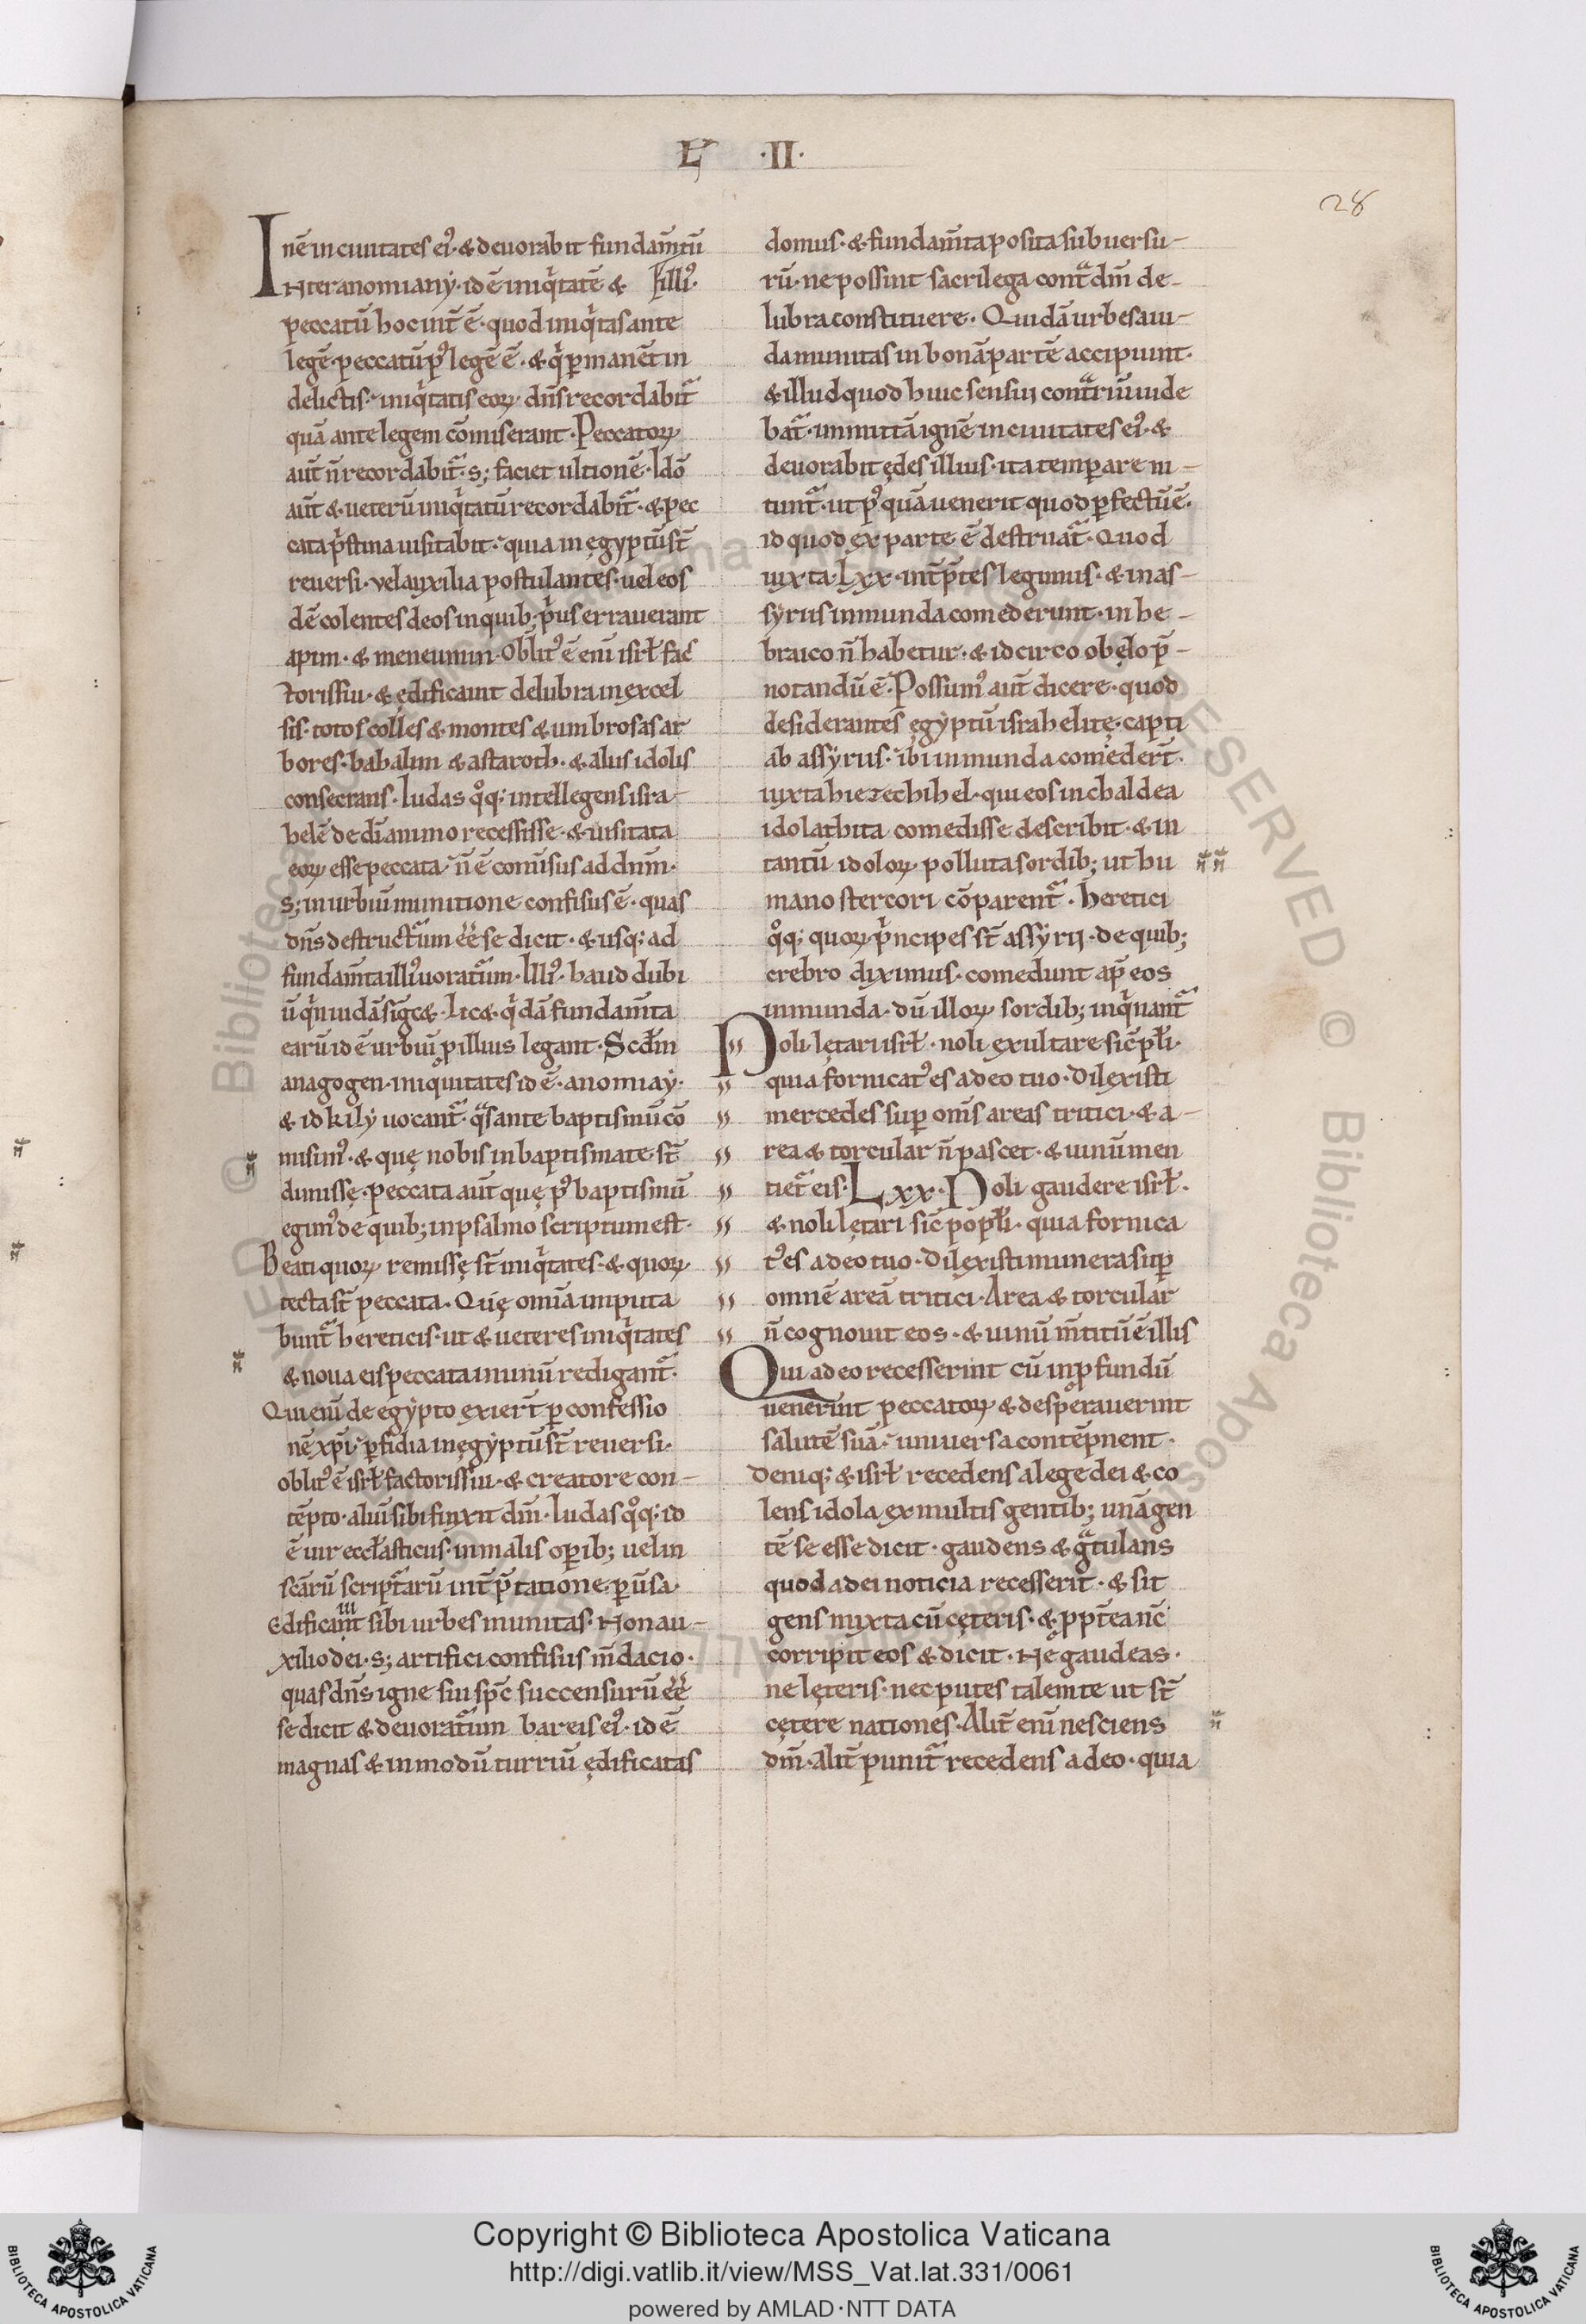 L II.
28
nē in ciuitates ei᾽. & deuorabit fundam̄tū
Inter anomiany. id ē iniq̍tatē & illi᾽.
peccatū hoc int̄ ē. quod iniq̍tas ante
legē. peccatū p᾽ legē ē. & q̍ ꝑmanēt in
delictis. iniq̍tatis eoꝝ dn̄s recordabit᷑
quā ante legem cōmiserant. Peccatoꝝ
aut̄ n̄ recordabit᷑. s; faciet ultionē. Idō
aut̄ & ueterū iniq̍tatū recordabit᷑. & pec
cata p̍stina uisitabit. quia in ęgyptū st̄
reuersi. vel auxilia postulantes. uel eos
dē colentes deos in quib; p̍us errauerant
apim. & meneumin. Oblit᾽ ē eni̅ isrł fac
toris sui. & ędificauit delubra in excel
sis. totos colles & montes & umbrosas ar
bores. bahalim & astaroth. & aliis idolis
consecrans. Iudas qͦq; intellegens isra-
helē de dī animo recessisse. & uisitata
eoꝝ esse peccata. n̄ ē conuersus ad dnm̄.
s; in urbiu̅ munitione confisus ē. quas
dn̄s destructᷓum ēē se dicit. & usq; ad
fundam̄ta illi᾽ uoratᷓum. Illi᾽. haud dubi
ū q̍n iudā sig̅cet. Licet q̍dā fundam̄ta
earū id ē urbiu̅ ꝓ illius legant. Scd̄m
anagogen. iniquitates id ē. anomiay.
& id kily uocant᷑. q̄s ante baptismū cō
misim᾽. & quę nobis in baptismate st̄
dimissę. peccata aut̄ quę p᾽ baptismū
egim᾽ de quib; in psalmo scriptum est.
Beati quoꝝ remissę st̄ iniq̍tates. & quoꝝ
tecta st̄ peccata. Quę omīa imputa
bunt᷑ hereticis. ut & ueteres iniq̍tates
& noua eis peccata in unū redigant᷑.
Qui eni̅ de egypto exiert̄ ꝑ confessio
nē xp̄i. ꝑfidia in ęgyptū st̄ reuersi.
oblit᾽ ē isrł factoris sui. & creatore con-
tēpto. aliu̅ sibi finxit dm̄. Iudas qͦq; id
ē uir ecctasticus. in malis oꝑib; uel in
scārū scriptᷓarū int̄p̄tatione ꝑūsa.
Edificant sibi urbes munitas. Non au-
xilio dei. s; artifici confisus m̄dacio.
quas dn̄s igne sui sp̄c succensurū ēē
se dicit & deuoratᷓum bareis ei᾽. id ē
magnas & in modū turriū ędificatas
domus. & fundam̄ta posita subuersu-
rū. ne possint sacrilega contᷓ dm̄ de-
lubra constituere. Quidā urbes aui-
da munitas in bonā partē accipiunt.
& illud quod huic sensui contᷓriu̅ uide
bat᷑. inmittā ignē in ciuitates ei᾽. &
deuorabit ędes illius. ita temꝑare ni-
tunt᷑. ut p᾽ quā uenerit quod ꝑfectū ē.
id quod ex parte ē destruat᷑. Quod
iuxta. Lxx. int̄p̄tes legimus. & in as-
syriis inmunda comederunt. in he-
braico n̄ habetur. & idcirco obęlo p̄-
notandū ē. Possum᾽ aut̄ dicere. quod
desiderantes ęgyptū israhelitę. capti
ab assyriis. ibi inmunda comedert̄.
iuxta hiezechihel. qui eos in chaldea
idolathita comedisse describit. & in
tantū idoloꝝ polluta sordib; ut hu
mano stercori cōparent᷑. Heretici
qͦq; quoꝝ p̍ncipes st̄ assyrii. de quib;
crebro diximus. comedunt ap̄ eos
inmunda. dū illoꝝ sordib; inq̍nant᷑
Noli lętari isrł. noli exultare sic̄ ppłi.
quia fornicat᾽ es a deo tuo. Dilexisti
mercedes suꝑ om̄s areas tritici. & a-
rea & torcular n̄ pascet. & uinū men
tiet᷑ eis. Lxx. Noli gaudere isrł.
& noli lętari sic̄ popłi. quia fornica
t᾽ es a deo tuo. Dilexisti munera suꝑ
omnē areā tritici. Area & torcular
n̄ cognouit eos. & uinū m̄titū ē illis
Qui a deo recesserint cū in ꝓfundū
uenerint peccatoꝝ & desperauerint
salutē suā. uniuersa contēpnent.
Deniq; & isrł recedens a lege dei & co
lens idola ex multis gentib; unā gen
tē se esse dicit. gaudens & gᷓtulans
quod a dei noticia recesserit. & sit
gens mixta cū cęteris. & ꝓpt̄ea nc̄
corripit eos & dicit. Ne gaudeas.
ne lęteris. nec putes talem te ut st̄
cętere nationes. Alit̄ eni̅ nesciens
dm̄. alit̄ punit᷑ recedens a deo. quia
Copyright © Biblioteca Apostolica Vaticana
http://digi.vatlib.it/view/MSS_Vat.lat.331/0061
powered by AMLAD·NTT DATA
BIBLIOTECA APOSTOLICA VATICANA
BIBLIOTECA APOSTOLICA VATICANA